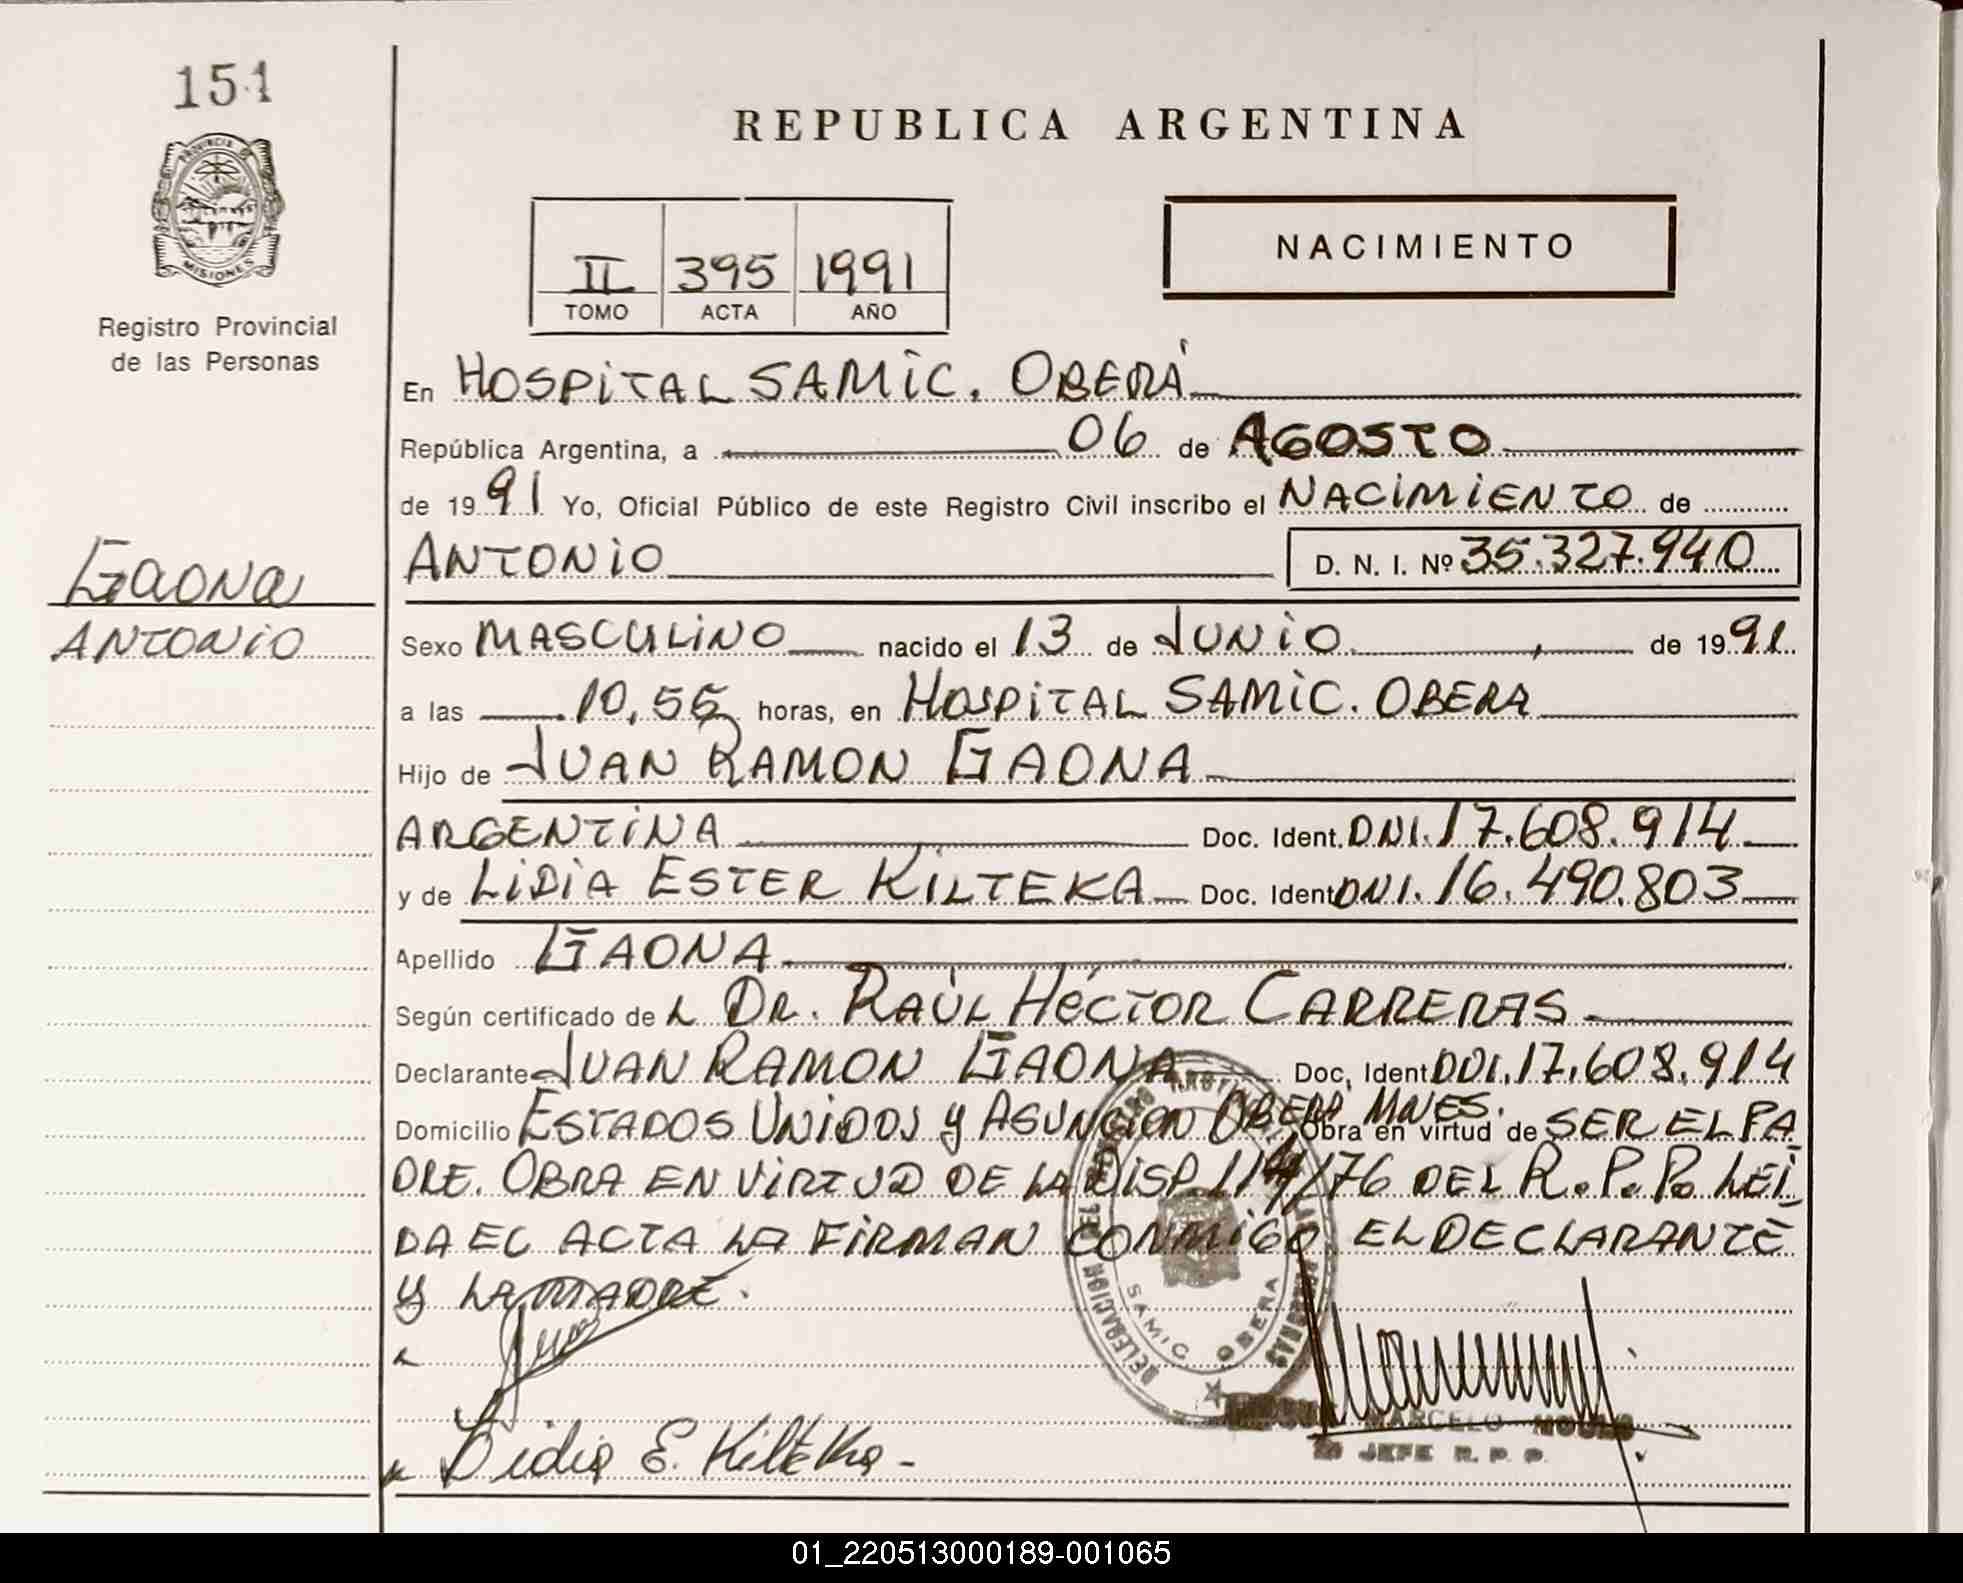 151
REPUBLICA ARGENTINA
PROVINCIA DE
MISIONES
Registro Provincial
de las Personas
II 395 1991
TOMO ACTA AÑO
NACIMIENTO
En HOSPITAL SAMIC. OBERÁ
República Argentina, a 06 de AGOSTO
de 1991 Yo, Oficial Público de este Registro Civil inscribo el NACIMIENTO de
GAONA
ANTONIO
ANTONIO D. N. I. Nº 35.327.940
Sexo MASCULINO nacido el 13 de JUNIO de 1991
a las 10,55 horas, en HOSPITAL SAMIC. OBERA
Hijo de JUAN RAMON GAONA
ARGENTINA Doc. Ident. DNI. 17.608.914
y de LIDIA ESTER KILTEKA Doc. Ident DNI. 16.490.803
Apellido GAONA
Según certificado de L DR. RAÚL HÉCTOR CARRERAS
Declarante JUAN RAMON GAONA Doc, Ident DNI. 17.608.914
Domicilio ESTADOS UNIDOS y ASUNCION OBERA MNES. Obra en virtud de SER EL PA
DRE. OBRA EN VIRTUD DE LA DISP. 114/76 DEL R.P.P. LEI
DA EL ACTA LA FIRMAN CONMIGO EL DECLARANTE
Y LA MADRE.
SAMIC OBERA
MARCELO
JEFE R. P. P.
Lidia E. Kilteka
01_220513000189-001065